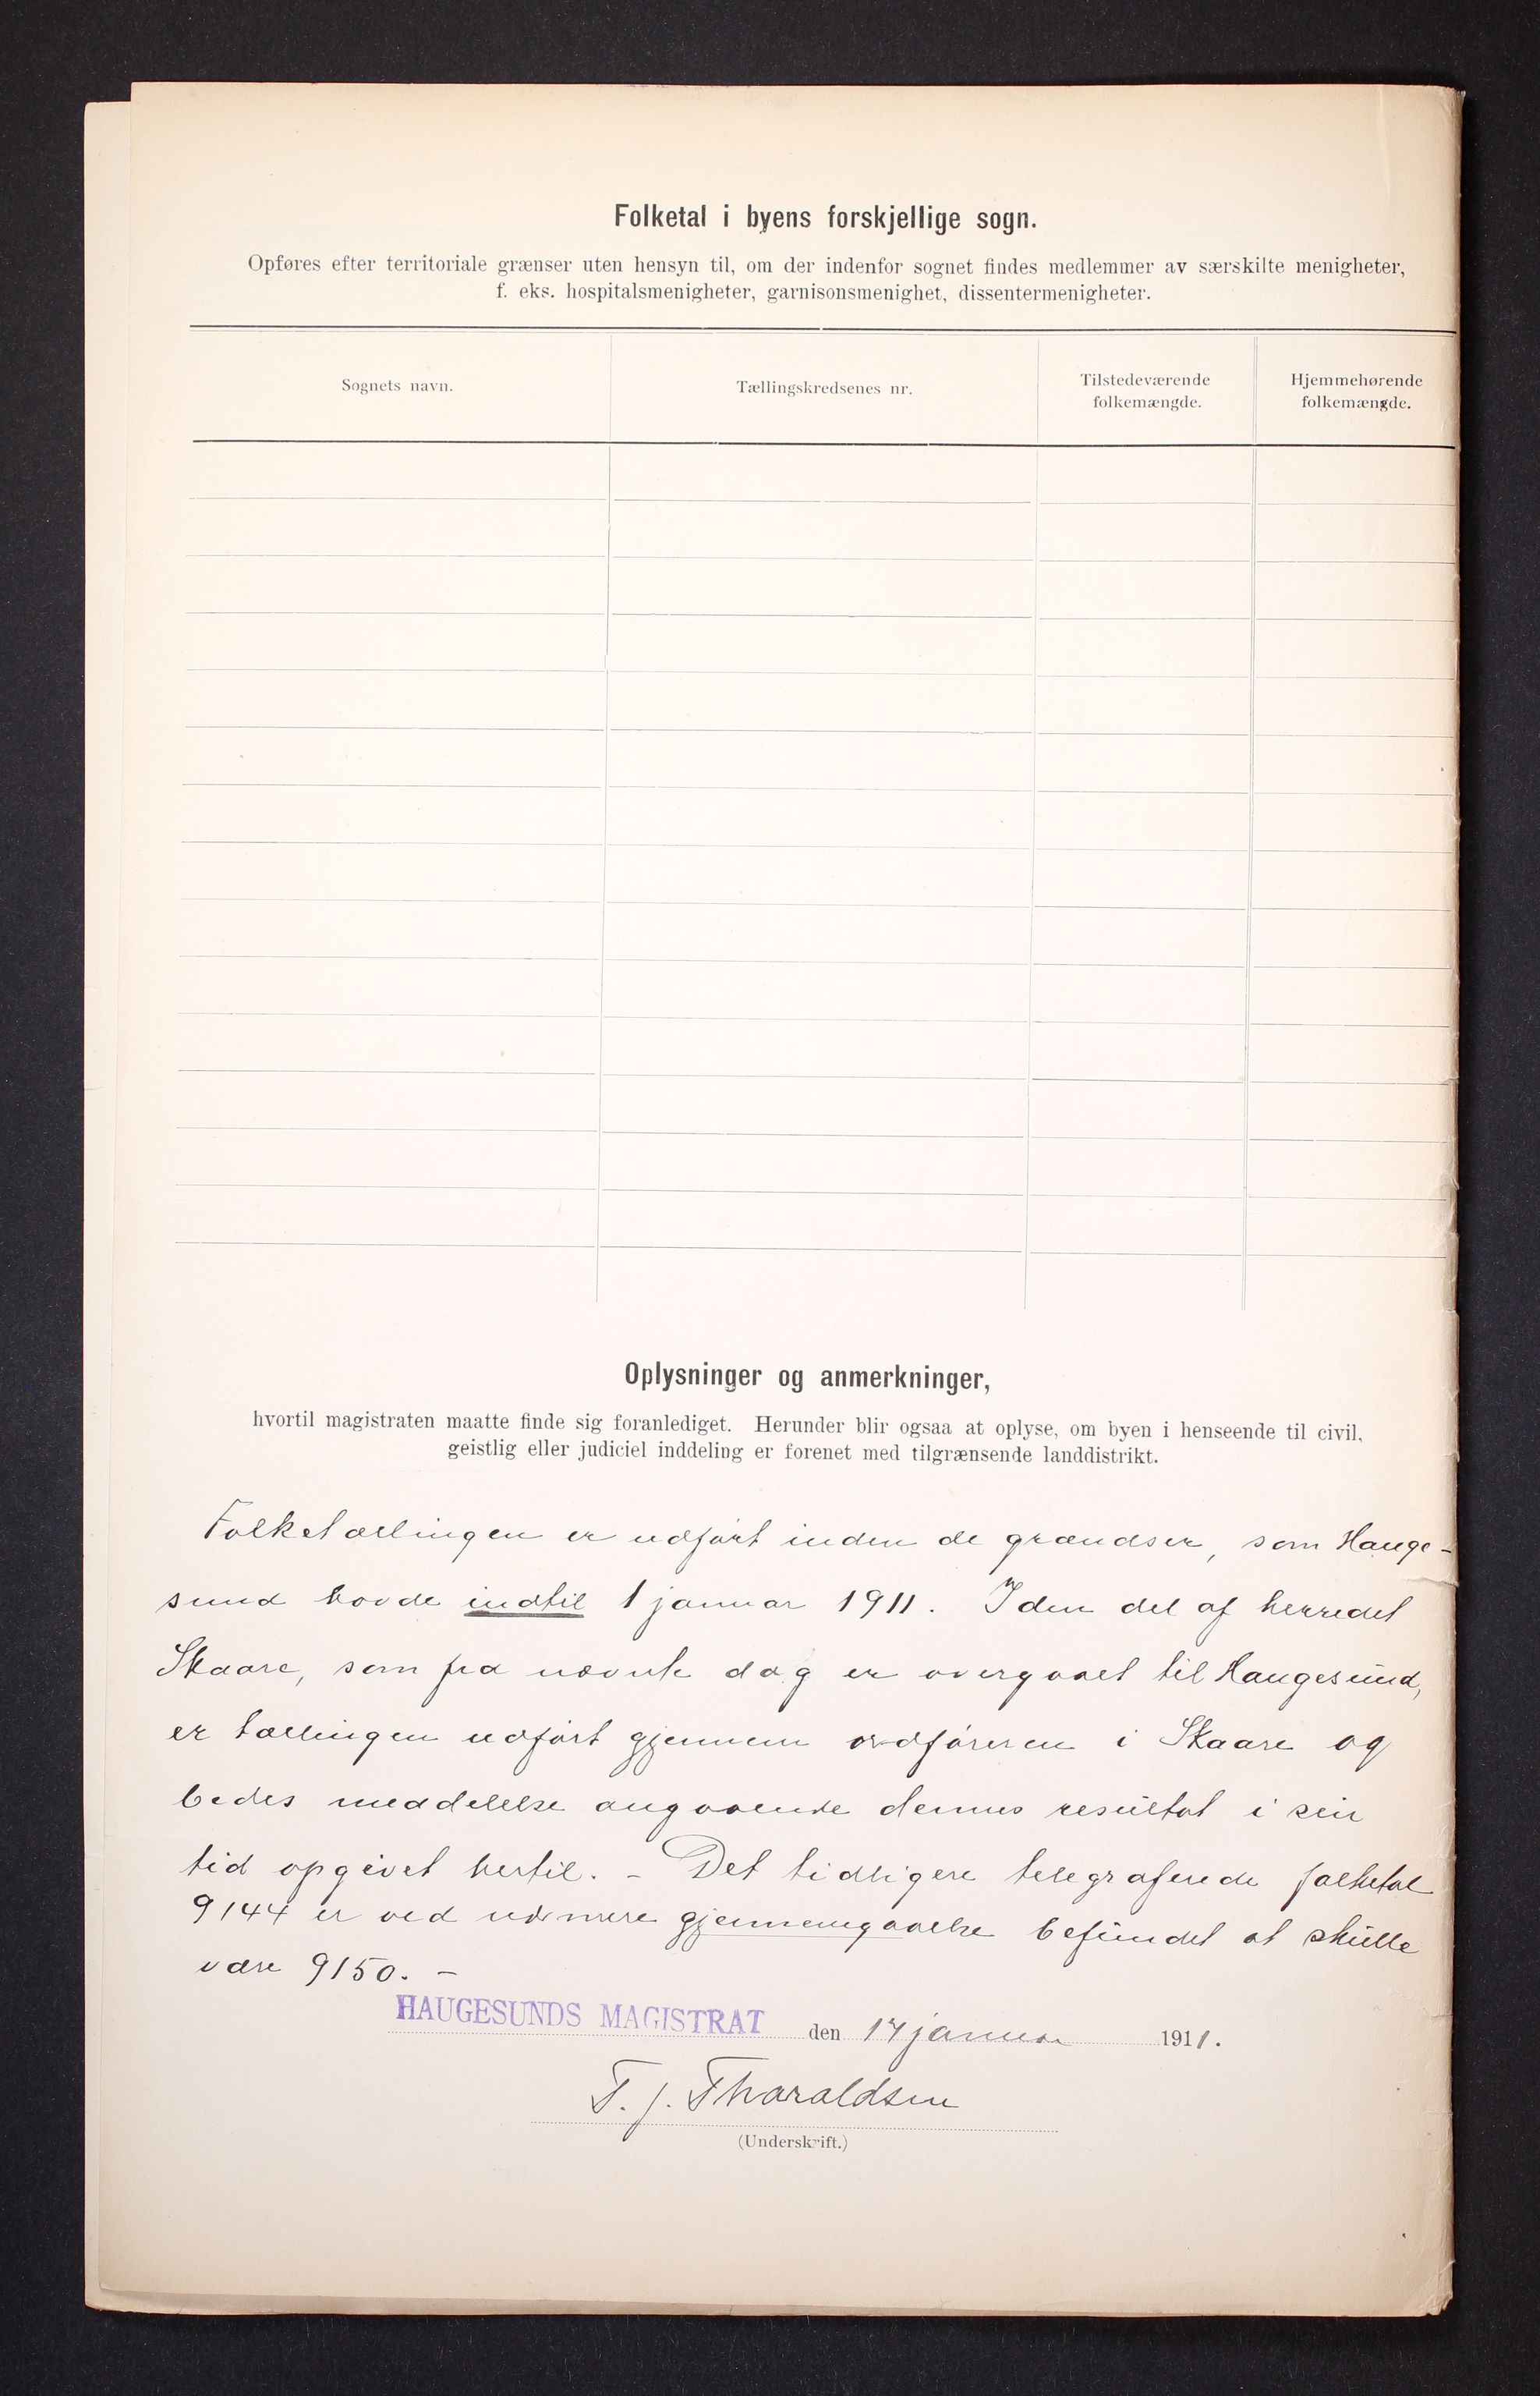 Folketal i byens forskjellige sogn.
Opføres efter territoriale grænser uten hensyn til, om der indenfor sognet findes medlemmer av særskilte menigheter,
f. eks. hospitalsmenigheter, garnisonsmenighet, dissentermenigheter.
Sognets navn.
Tællingskredsenes nr.
Tilstedeværende folkemængde.
Hjemmehørende folkemængde.
Oplysninger og anmerkninger,
hvortil magistraten maatte finde sig foranlediget. Herunder blir ogsaa at oplyse, om byen i henseende til civil,
geistlig eller judiciel inddeling er forenet med tilgrænsende landdistrikt.
Folketællingen er udført inden de grændser, som Hauge-
sund havde indtil 1 januar 1911. I den del af herredet
Skaare, som fra nævnte dag er overgaaet til Haugesund,
er tællingen udført gjennem ordføreren i Skaare og
bedes meddelelse angaaende dennes resultat i sin
tid opgivet hertil. – Det tidligere telegraferede folketal
9144 er ved nærmere gjennemgaaelse befundet at skulle
være 9150. –
HAUGESUNDS MAGISTRAT den 14 januar 1911.
T. J. Tharaldsen
(Underskrift.)